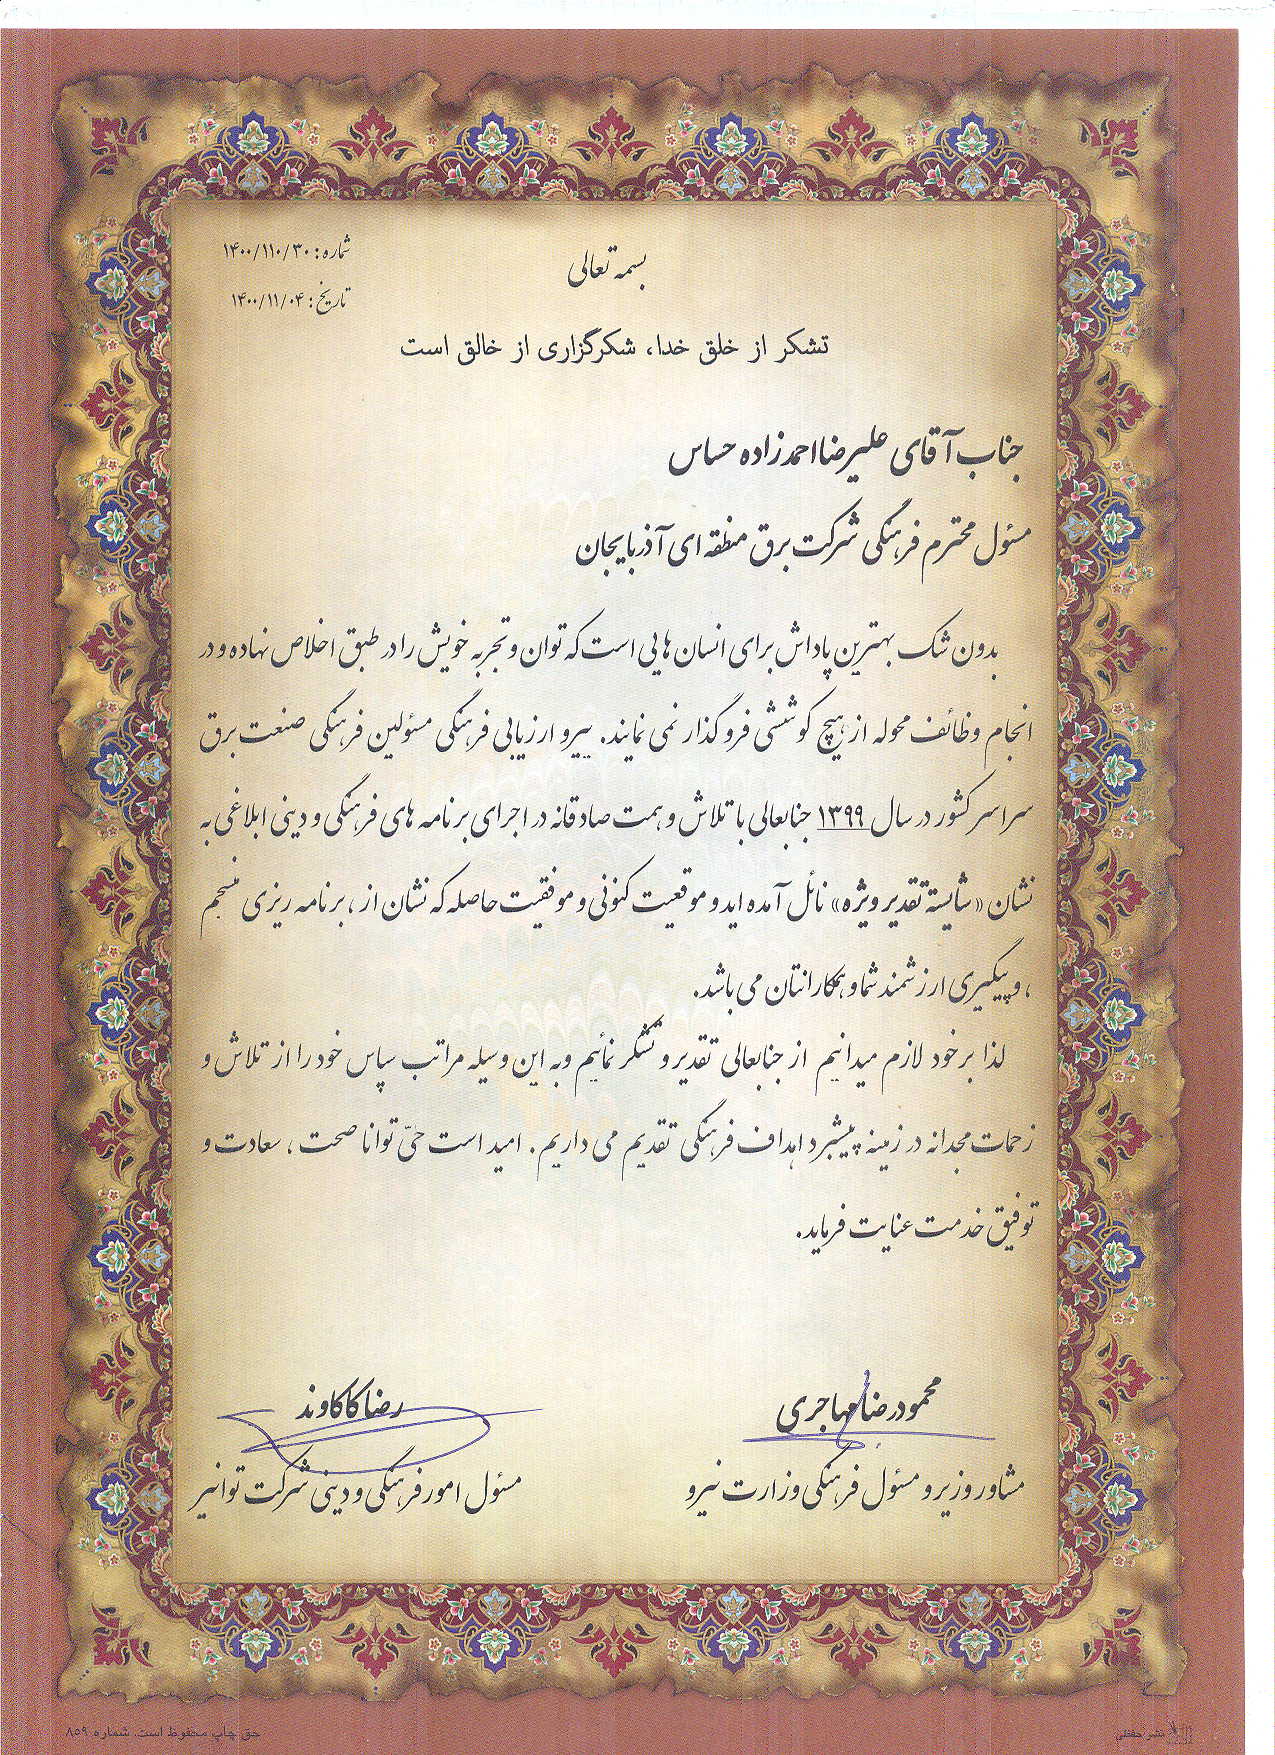 بسمه تعالی
شماره: ۱۴۰۰/۱۱۰/۳۰
تاریخ: ۱۴۰۰/۱۱/۰۴
تشکر از خلق خدا، شکرگزاری از خالق است
جناب آقای علیرضا احمدزاده حساس
مسئول محترم فرهنگی شرکت برق منطقه ای آذربایجان
بدون شک بهترین پاداش برای انسان هایی است که توان و تجربه خویش را در طبق اخلاص نهاده و در
انجام وظائف محوله از هیچ کوششی فروگذار نمی نمایند. پیرو ارزیابی فرهنگی مسئولین فرهنگی صنعت برق
سراسر کشور در سال ۱۳۹۹ جنابعالی با تلاش و همت صادقانه در اجرای برنامه های فرهنگی و دینی ابلاغی به
نشان «شایسته تقدیر ویژه» نائل آمده اید و موقعیت کنونی و موفقیت حاصله که نشان از ، برنامه ریزی منسجم
، و پیگیری ارزشمند شما و همکارانتان می باشد.
لذا بر خود لازم میدانیم از جنابعالی تقدیر و تشکر نمائیم و به این وسیله مراتب سپاس خود را از تلاش و
زحمات مجدانه در زمینه پیشبرد اهداف فرهنگی تقدیم می داریم. امید است حیّ توانا صحت ، سعادت و
توفیق خدمت عنایت فرماید.
محمودرضا مهاجری
مشاور وزیر و مسئول فرهنگی وزارت نیرو
رضا کاکاوند
مسئول امور فرهنگی و دینی شرکت توانیر
نشر حفظی
حق چاپ محفوظ است. شماره ۸۵۹